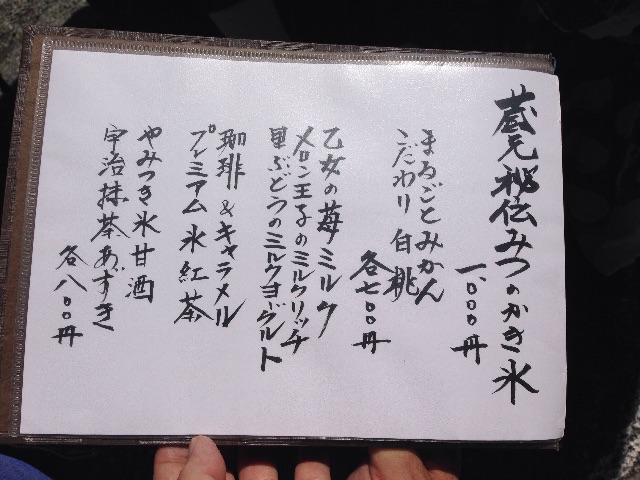 蔵元秘伝みつのかき氷
一、〇〇〇円
まるごとみかん
こだわり白桃
各七〇〇円
乙女の苺ミルク
メロン王子のミルクリッチ
黒ぶどうのミルクヨーグルト
珈琲&キャラメル
プレミアム氷紅茶
やみつき氷甘酒
宇治抹茶あずき
各八〇〇円